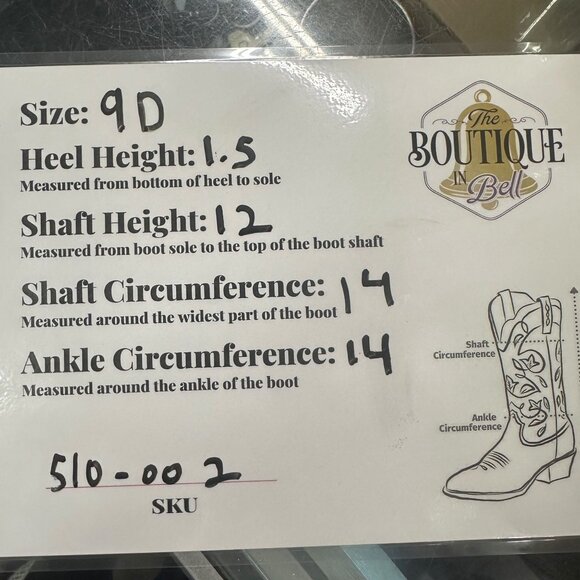 Size: 9D
The
BOUTIQUE
IN
Bell
Heel Height: 1.5
Measured from bottom of heel to sole
Shaft Height: 12
Measured from boot sole to the top of the boot shaft
Shaft Circumference: 14
Measured around the widest part of the boot
Shaft
Circumference
Ankle Circumference: 14
Measured around the ankle of the boot
Ankle
Circumference
510-002
SKU